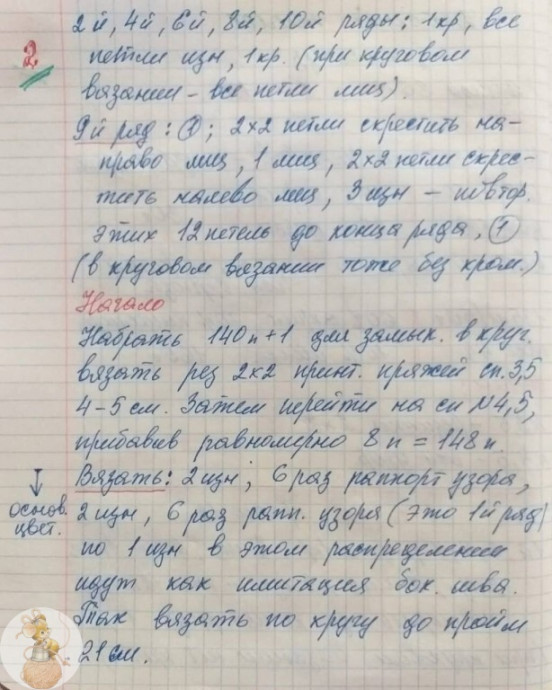 2й, 4й, 6й, 8й, 10й ряды: 1 кр, все
2.
петли изн, 1 кр. (при круговом
вязании - все петли лиц).
9й ряд: ①; 2х2 петли скрестить на-
право лиц, 1 лиц, 2х2 петли скрес-
тить налево лиц, 3 изн - повтор.
этих 12 петель до конца ряда, ①
(в круговом вязании тоже без кром.)
Начало
Набрать 140п+1 для замык. в круг.
вязать рез 2х2 принт. пряжей сп. 3,5
4-5 см. Затем перейти на сп №4,5,
прибавив равномерно 8п = 148п.
Вязать: 2 изн; 6 раз раппорт узора,
основ.
цвет.
2 изн, 6 раз рапп. узора (это 1й ряд)
по 1 изн в этом распределении
идут как имитация бок. шва.
Так вязать по кругу до пройм
21 см.